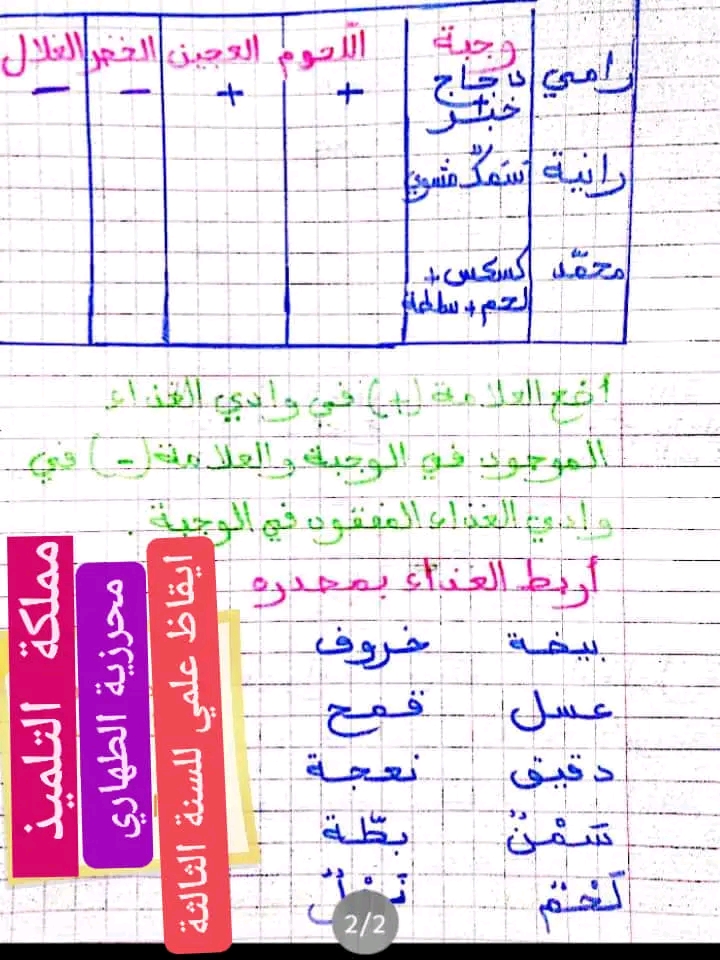 وجبة اللّحوم العجين الخضر الغلال
رامي دجاج + خبز + + - -
رانية سَمَكٌ مشوي
محمّد كسكس +
لحم + سلطة
أضع العلامة (+) في وادي الغذاء
الموجود في الوجبة والعلامة (-) في
وادي الغذاء المفقود في الوجبة.
أربط الغذاء بمصدره
بيضة خروف
عسل قمح
دقيق نعجة
سَمْنٌ بطّة
لَحْمٌ
2/2
ايقاظ علمي للسنة الثالثة
محرزية الطهاري
مملكة التلميذ